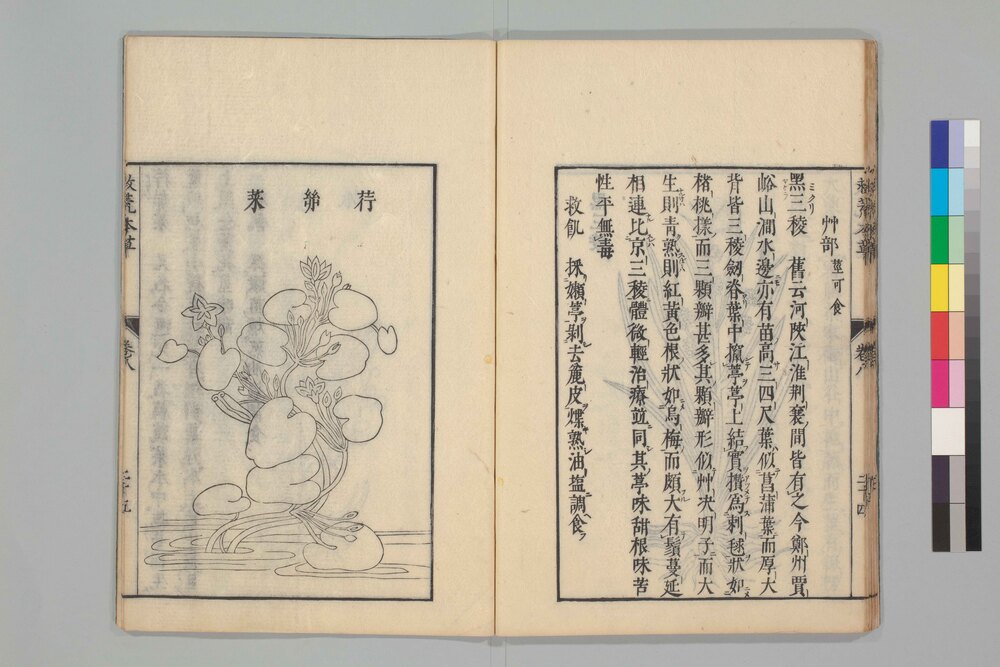 艸部 莖可食
黑三稜 ミクリ 舊云河陝江淮荆襄間皆有之今鄭州賈
峪山澗水邊亦有苗高三四尺葉似菖蒲葉而厚大
背皆三稜劔脊葉中攛葶葶上結實攅為刺毬狀如
楮桃樣而三顆瓣甚多其顆瓣形似艸决明子而大
生則青熟則紅黃色根狀如烏梅而頗大有鬚蔓延
相連比京三稜體微輕治療並同其葶味甜根味苦
性平無毒
救飢 採嫩葶剥去麁皮煠熟油塩調食
荇絲菜
救荒本草
卷八
二十五